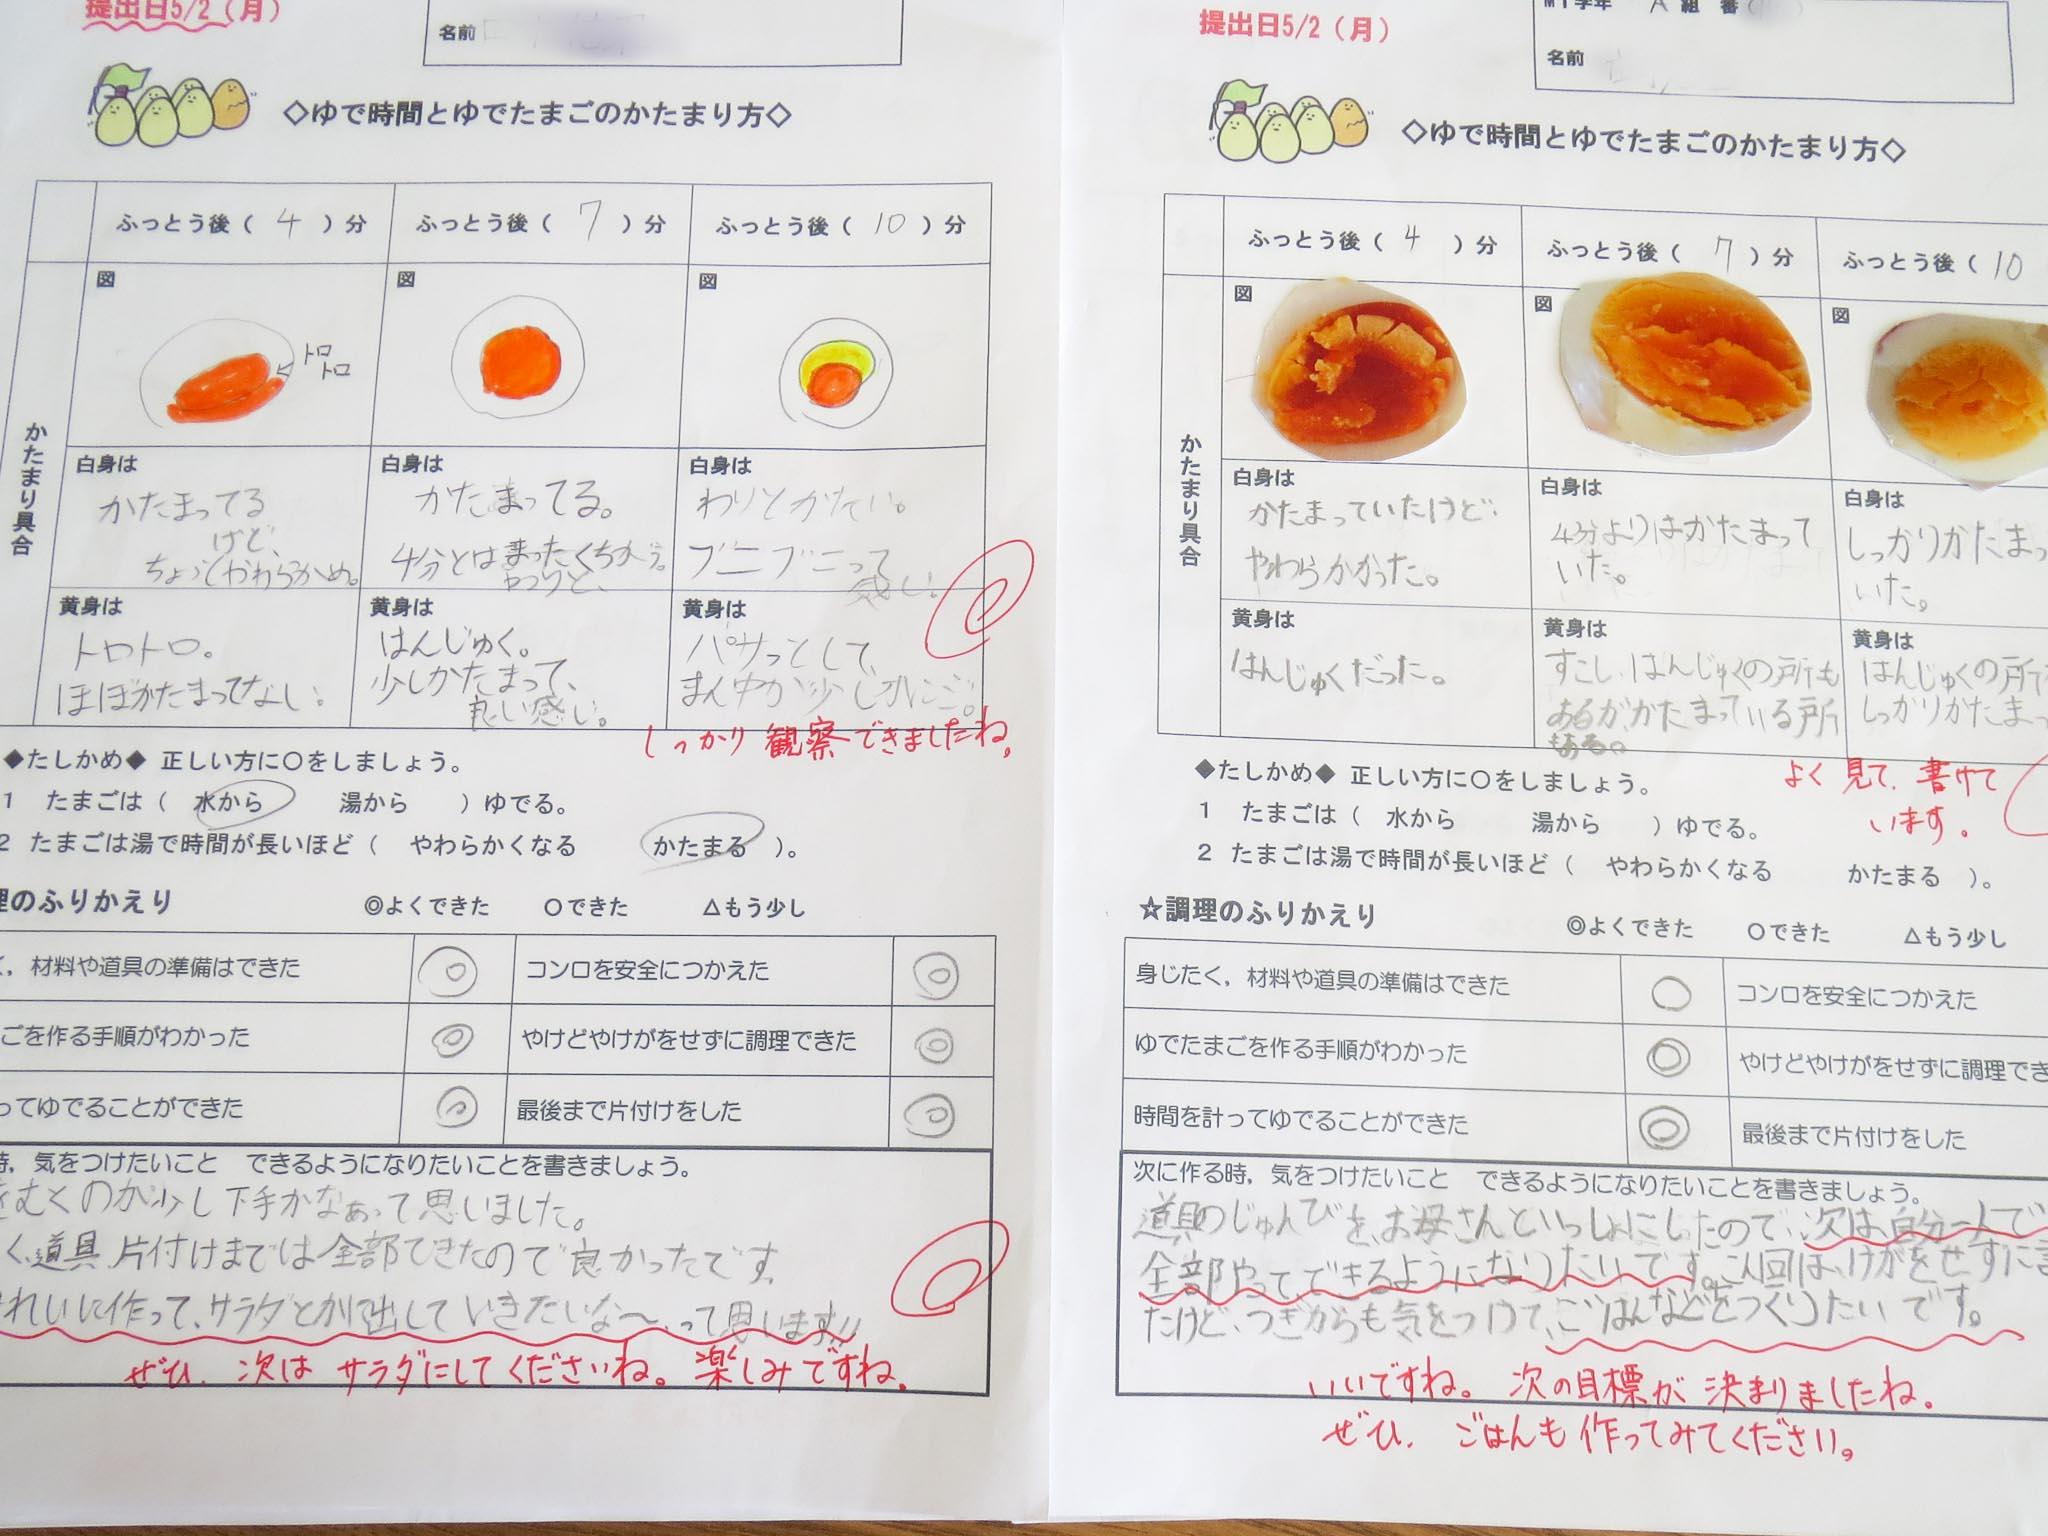 提出日5/2（月）
名前
◇ゆで時間とゆでたまごのかたまり方◇
ふっとう後（ 4 ）分
ふっとう後（ 7 ）分
ふっとう後（ 10 ）分
かたまり具合
図
トロ
トロ
図
図
白身は
かたまってる
けど、
ちょっとやわらかめ。
白身は
かたまってる。
4分とはまったくちがう。
白身は
わりとかたい。
プニプニって
感じ。
黄身は
トロトロ。
ほぼかたまってなし。
黄身は
はんじゅく。
少しかたまって、
良い感じ。
黄身は
パサっとして、
まん中が少し
しっかり観察できましたね。
◆たしかめ◆ 正しい方に○をしましょう。
1 たまごは（ 水から 湯から ）ゆでる。
2 たまごは湯で時間が長いほど（ やわらかくなる かたまる ）。
理のふりかえり
◎よくできた ○できた △もう少し
く，材料や道具の準備はできた ◎
コンロを安全につかえた ◎
ごを作る手順がわかった ◎
やけどやけがをせずに調理できた ◎
ってゆでることができた ◎
最後まで片付けをした ◎
時，気をつけたいこと できるようになりたいことを書きましょう。
をむくのが少し下手かなぁって思いました。
く、道具、片付けまでは全部できたので良かったです。
きれいに作って、サラダとかに出していきたいな〜、って思います!!
ぜひ、次はサラダにしてくださいね。楽しみですね。
提出日5/2（月）
M1学年 A 組 番
名前
◇ゆで時間とゆでたまごのかたまり方◇
ふっとう後（ 4 ）分
ふっとう後（ 7 ）分
ふっとう後（ 10
かたまり具合
図
図
図
白身は
かたまっていたけど、
やわらかかった。
白身は
4分よりはかたまって
いた。
白身は
しっかりかたまっ
いた。
黄身は
はんじゅくだった。
黄身は
すこし、はんじゅくの所も
あるが、かたまっている所
もある。
黄身は
はんじゅくの所
しっかりかたまっ
よく見て、書けて
います。
◆たしかめ◆ 正しい方に○をしましょう。
1 たまごは（ 水から 湯から ）ゆでる。
2 たまごは湯で時間が長いほど（ やわらかくなる かたまる ）。
☆調理のふりかえり
◎よくできた ○できた △もう少し
身じたく，材料や道具の準備はできた ○
コンロを安全につかえた
ゆでたまごを作る手順がわかった ◎
やけどやけがをせずに調理でき
時間を計ってゆでることができた ◎
最後まで片付けをした
次に作る時，気をつけたいこと できるようになりたいことを書きましょう。
道具のじゅんびを、お母さんといっしょにしたので、次は、自分一人で
全部やって、できるようになりたいです。今回は、けがをせずに
たけど、つぎからも気をつけて、ごはんなどをつくりたいです。
いいですね。次の目標が決まりましたね。
ぜひ、ごはんも作ってみてください。